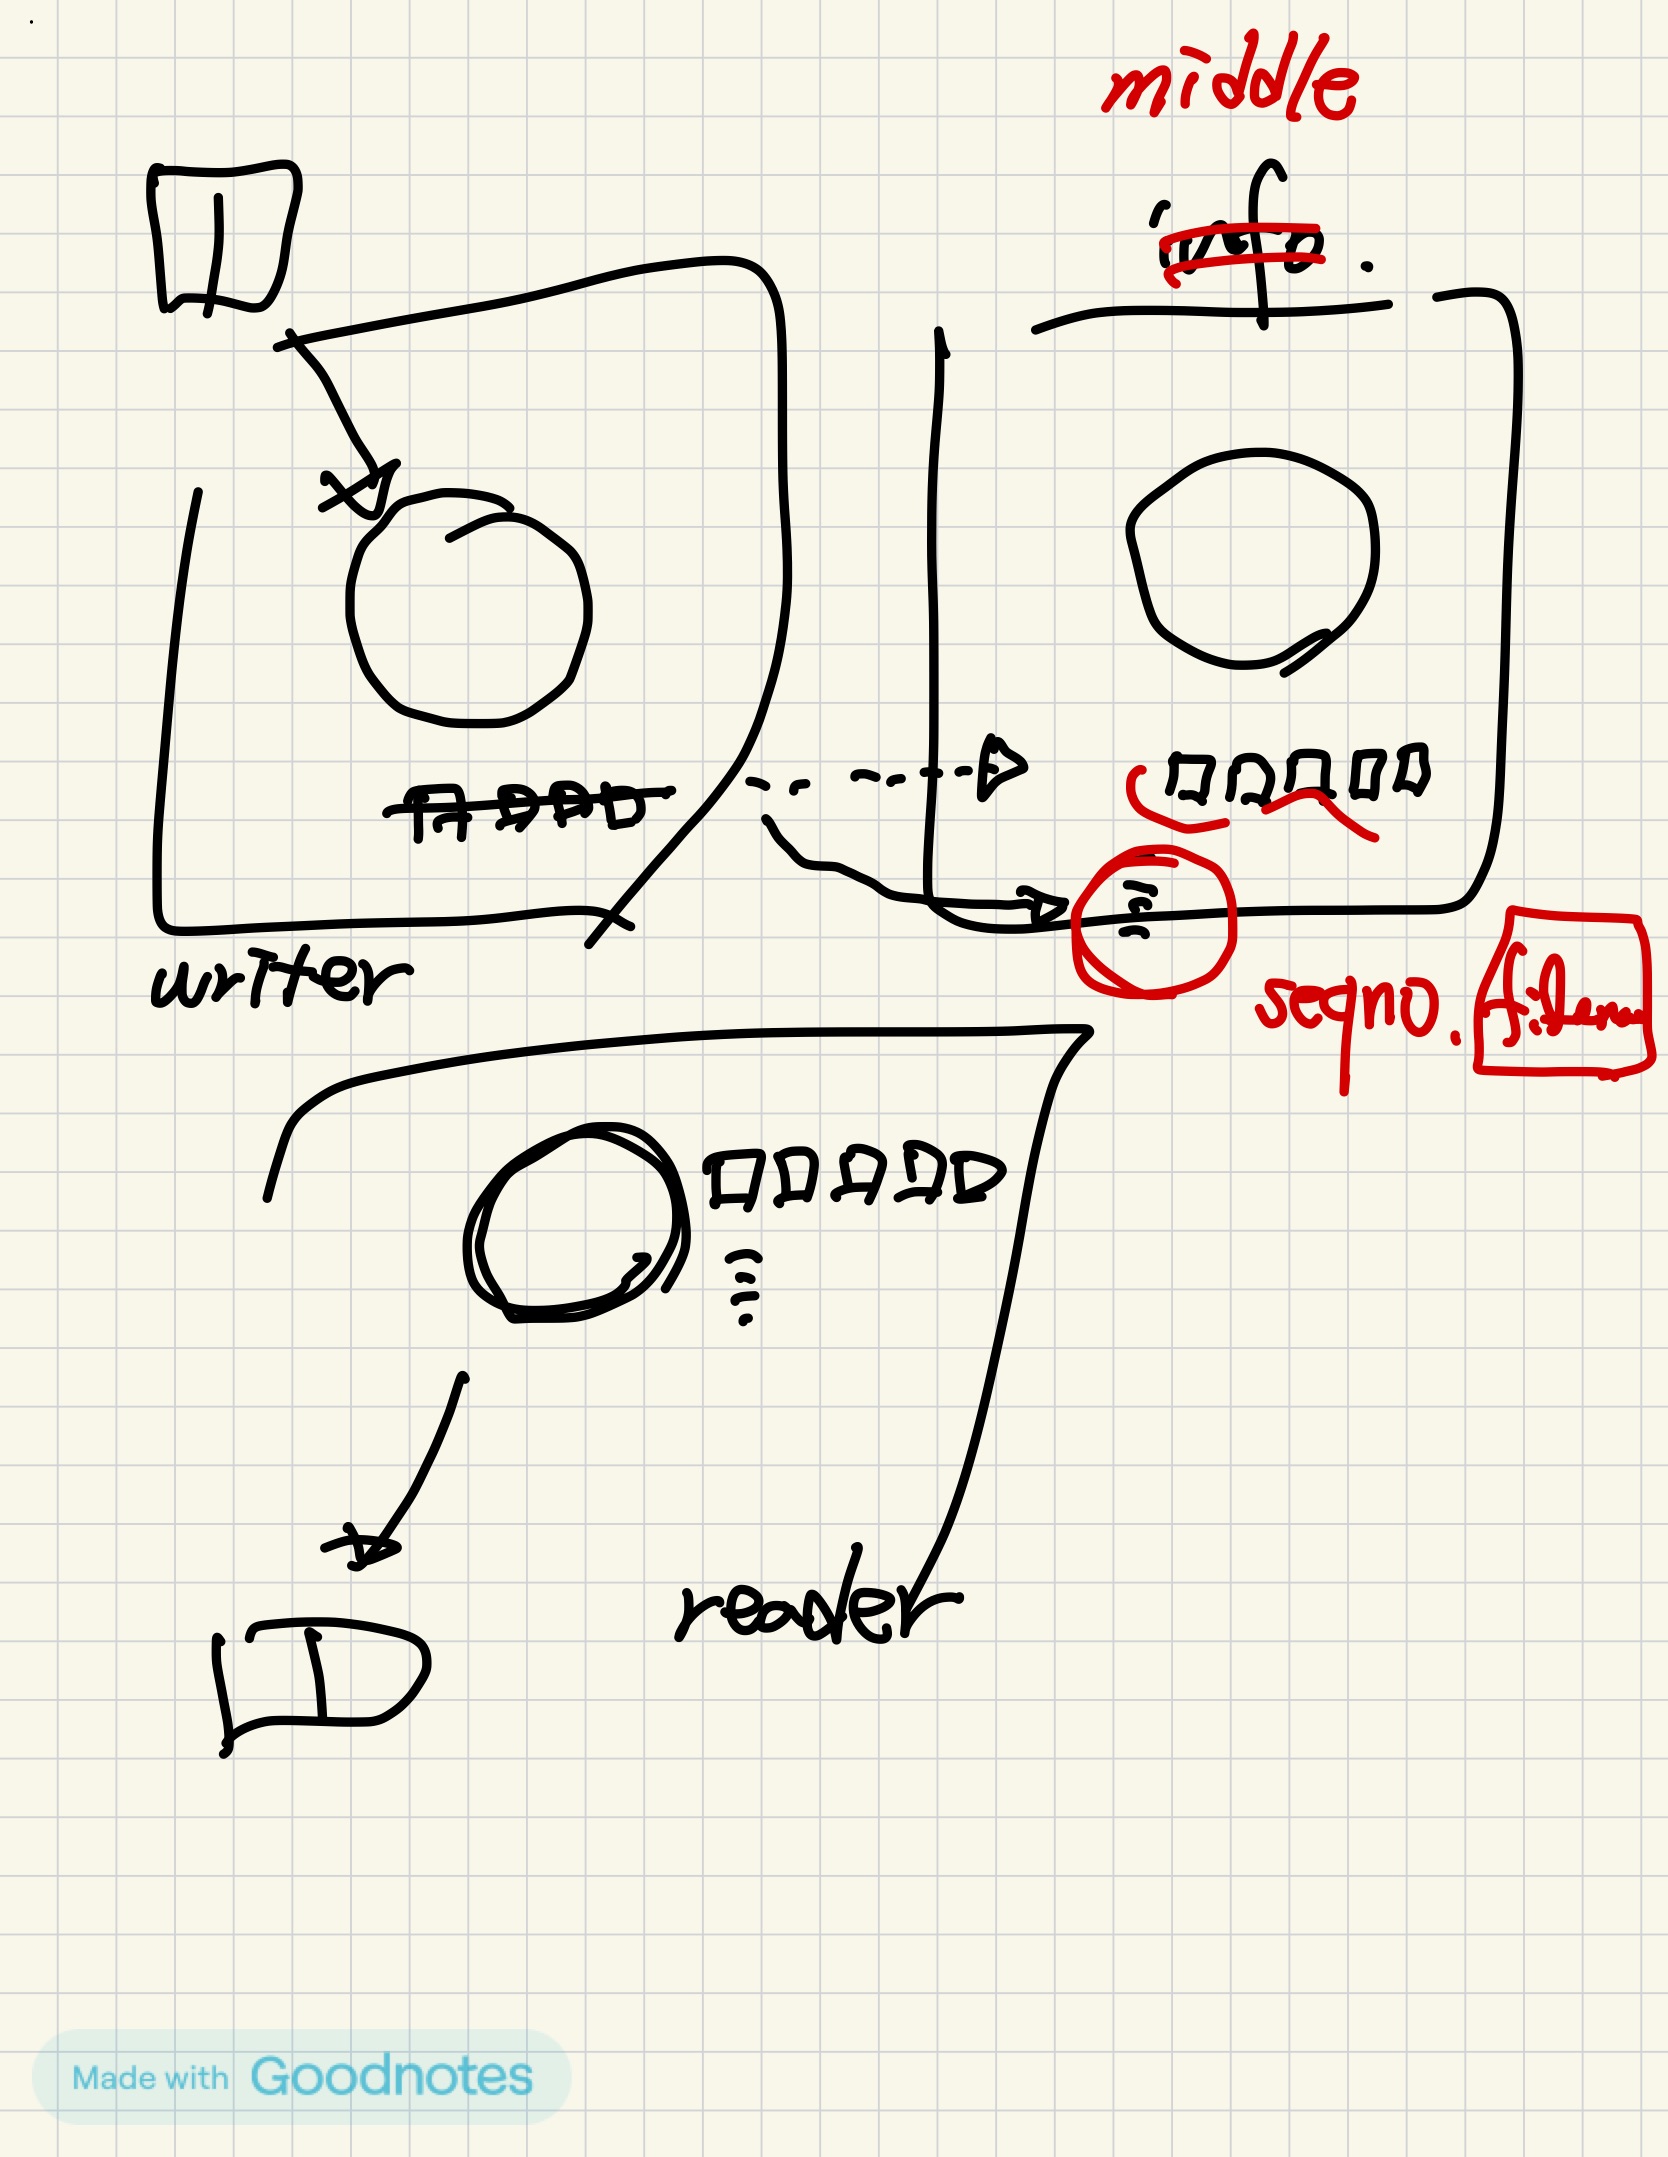 middle
info.
writer
seqno.
reader
Made with Goodnotes